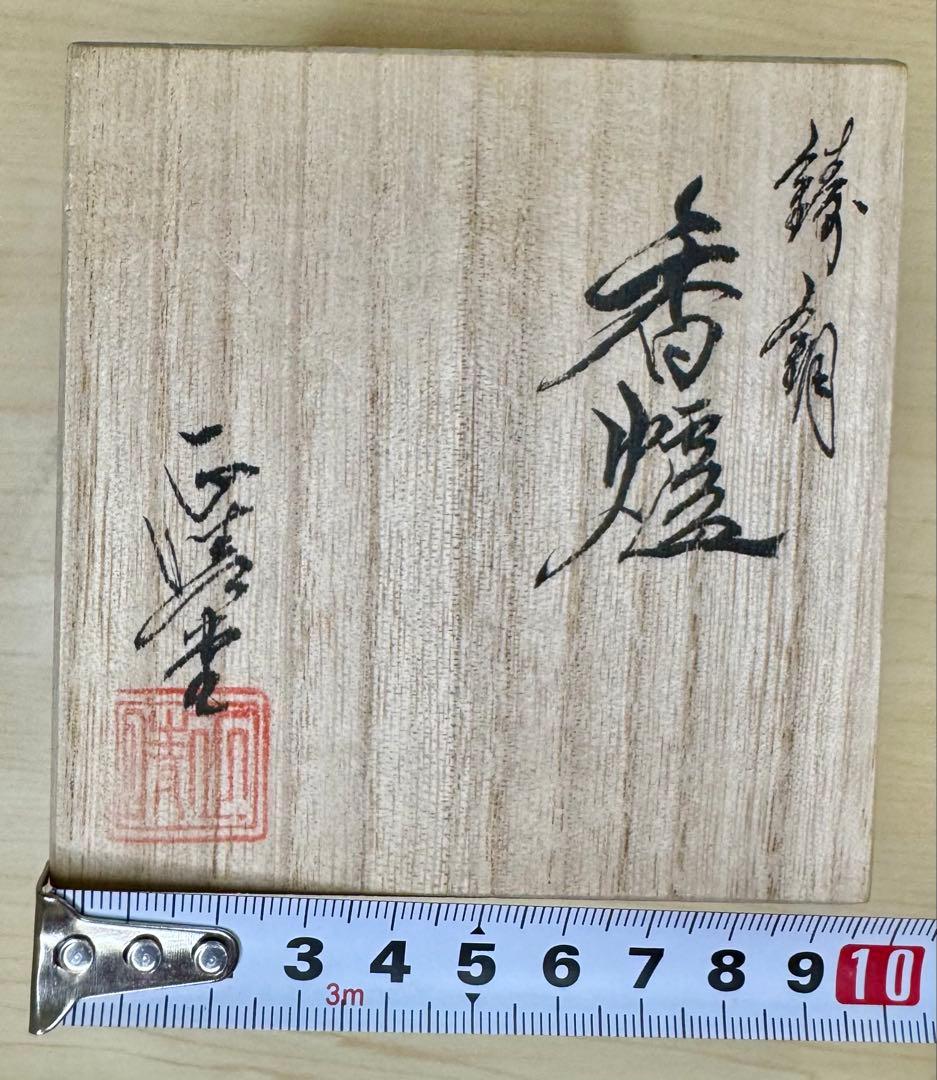 鋳銅
香爐
正晴堂
3 4 5 6 7 8 9 10
3m